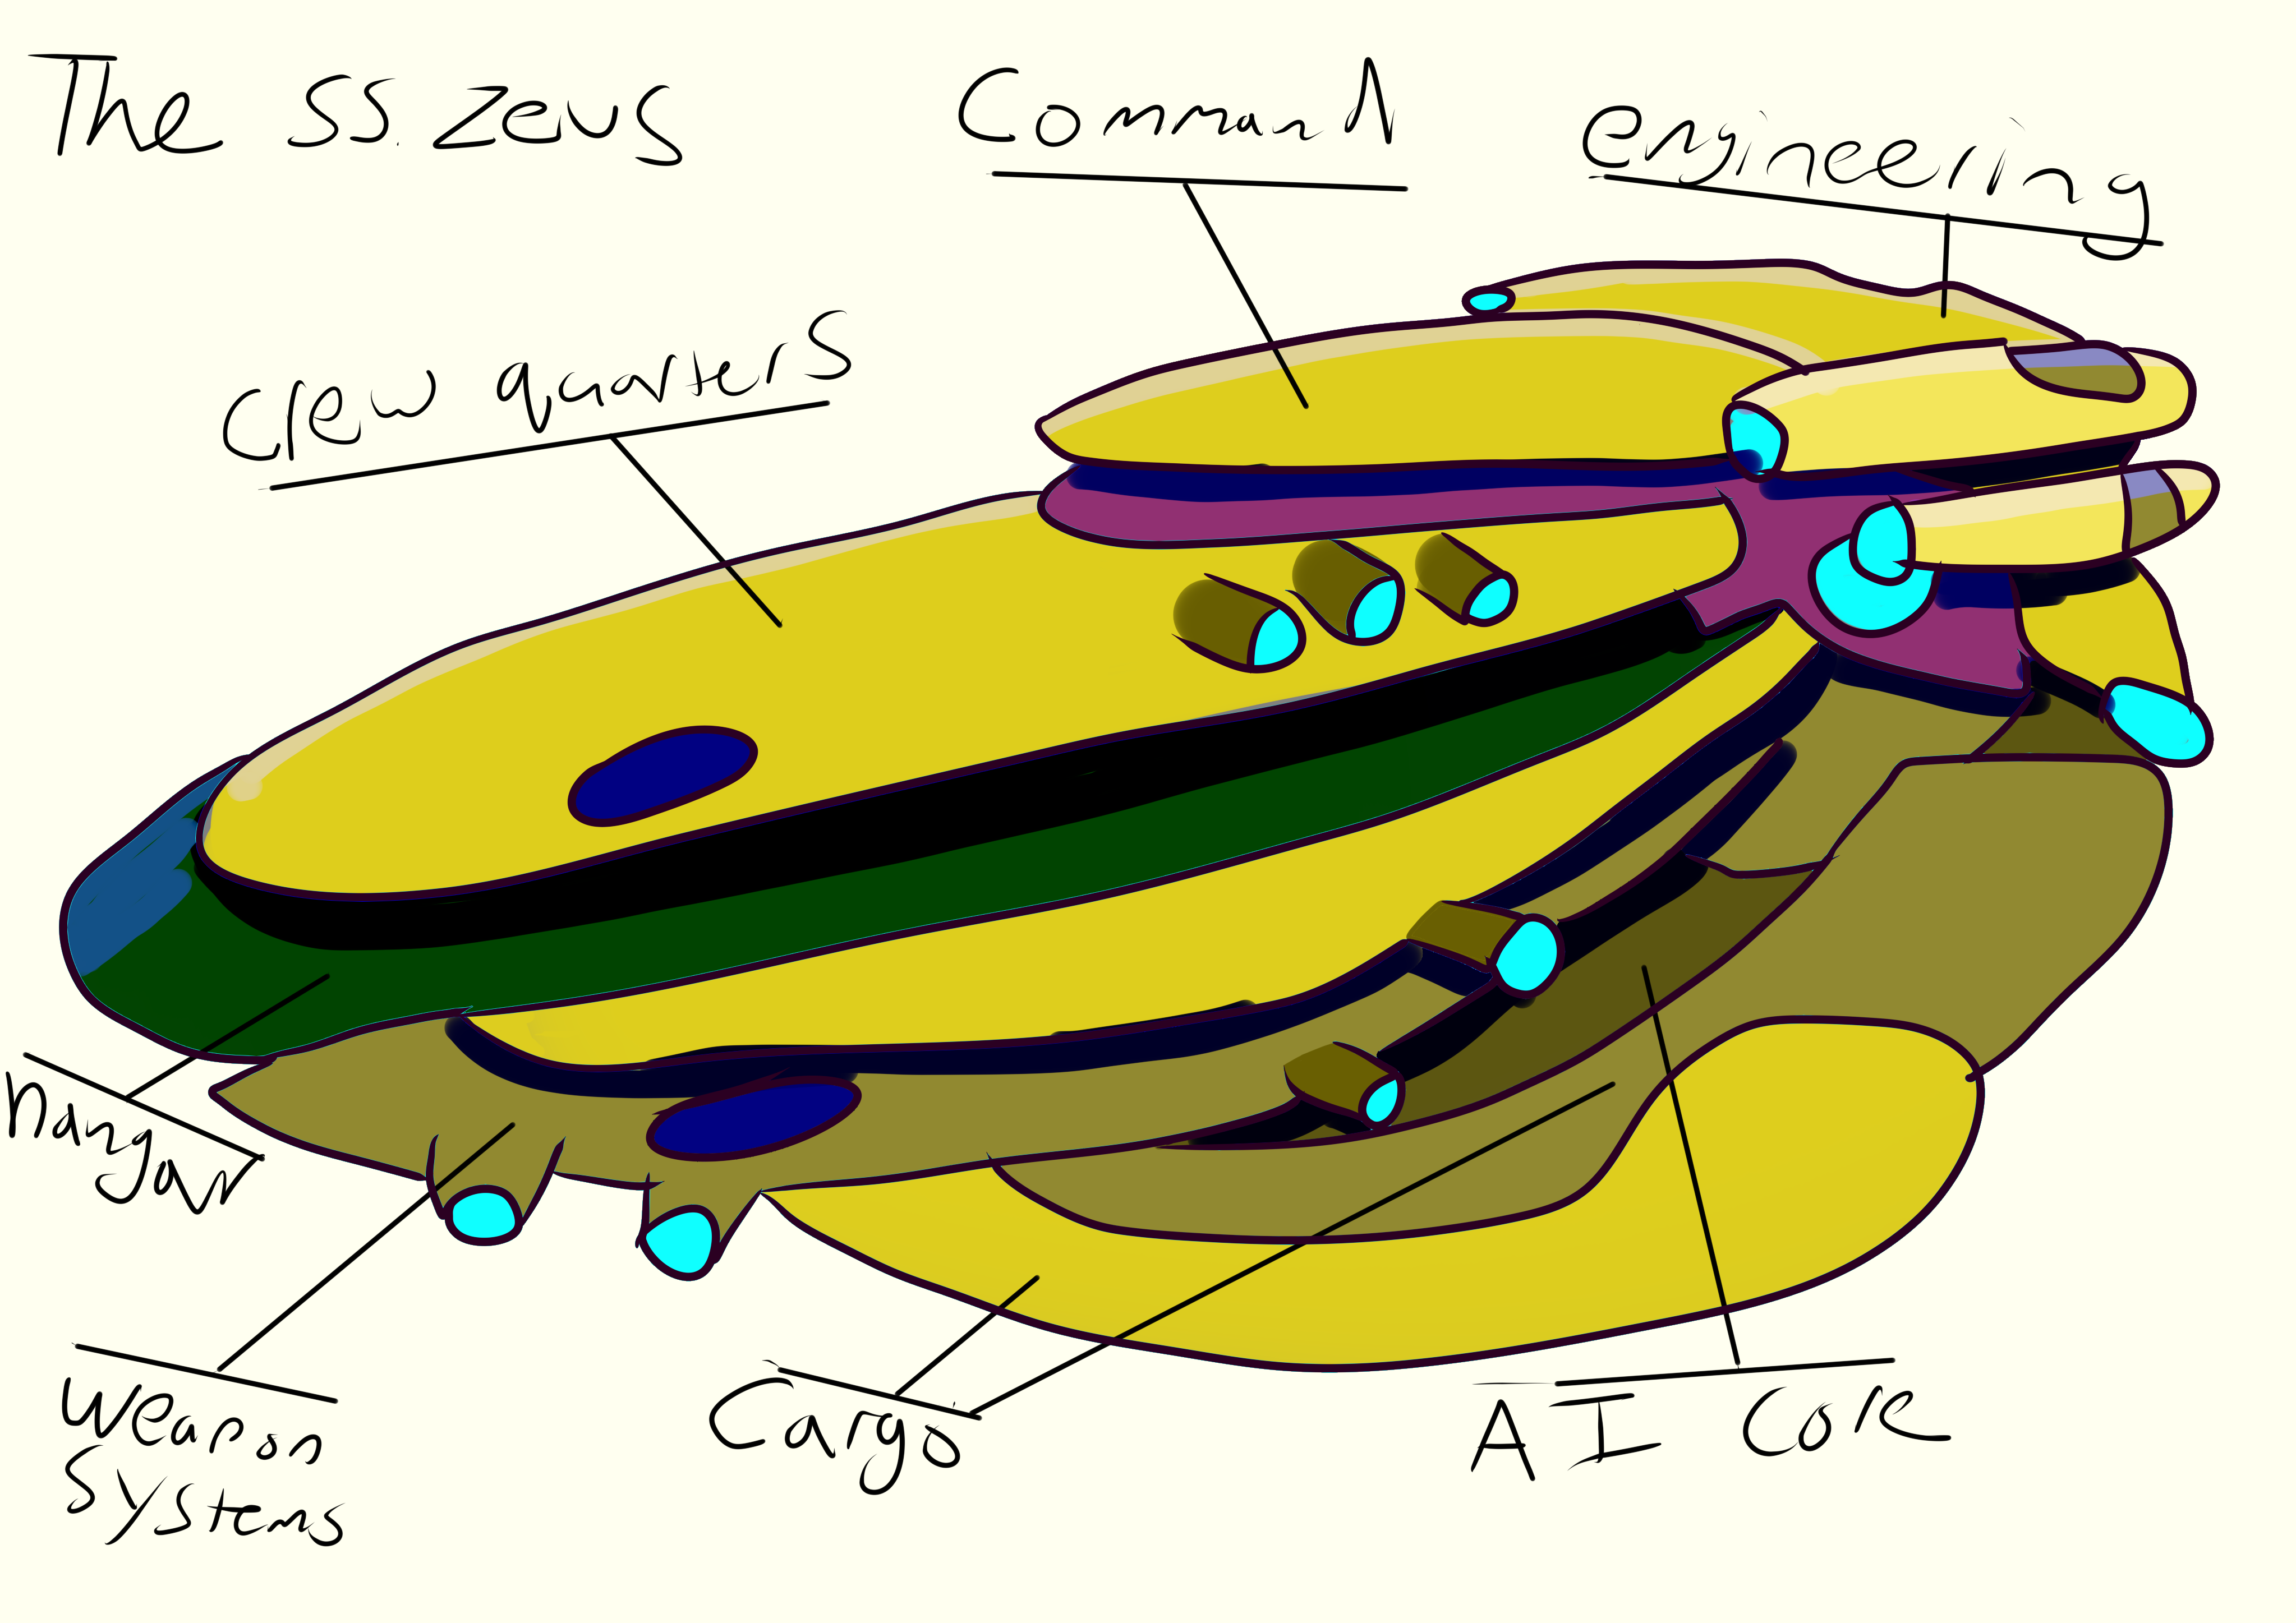 The SS. Zeus
Command
engineering
Crew quarters
hangar
Weapon
Systems
Cargo
AI CoRe